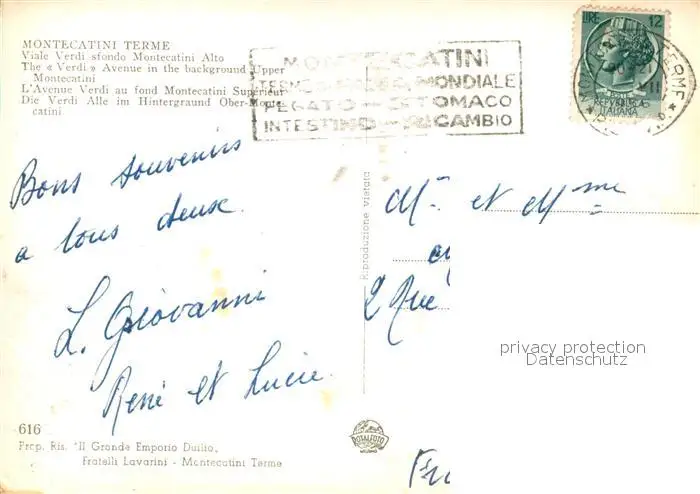 MONTECATINI TERME
Viale Verdi - sfondo Montecatini Alto
The « Verdi » Avenue in the background Upper
Montecatini
L'Avenue Verdi au fond Montecatini Supérieur
Die Verdi Alle im Hintergraund Ober-Monte-
catini
MONTECATINI
MONDIALE
FEGATO - STOMACO
INTESTINO - RICAMBIO
LIRE 12
REPVBBLICA
ITALIANA
TERME
Bons souvenirs
a tous deux.
L. Giovanni
René et Lucie
Mr et Mme
2 Rue
Riproduzione vietata
privacy protection
Datenschutz
616
Prop. Ris. "Il Grande Emporio Duilio"
Fratelli Lavarini - Montecatini Terme
ROTALFOTO
MILANO